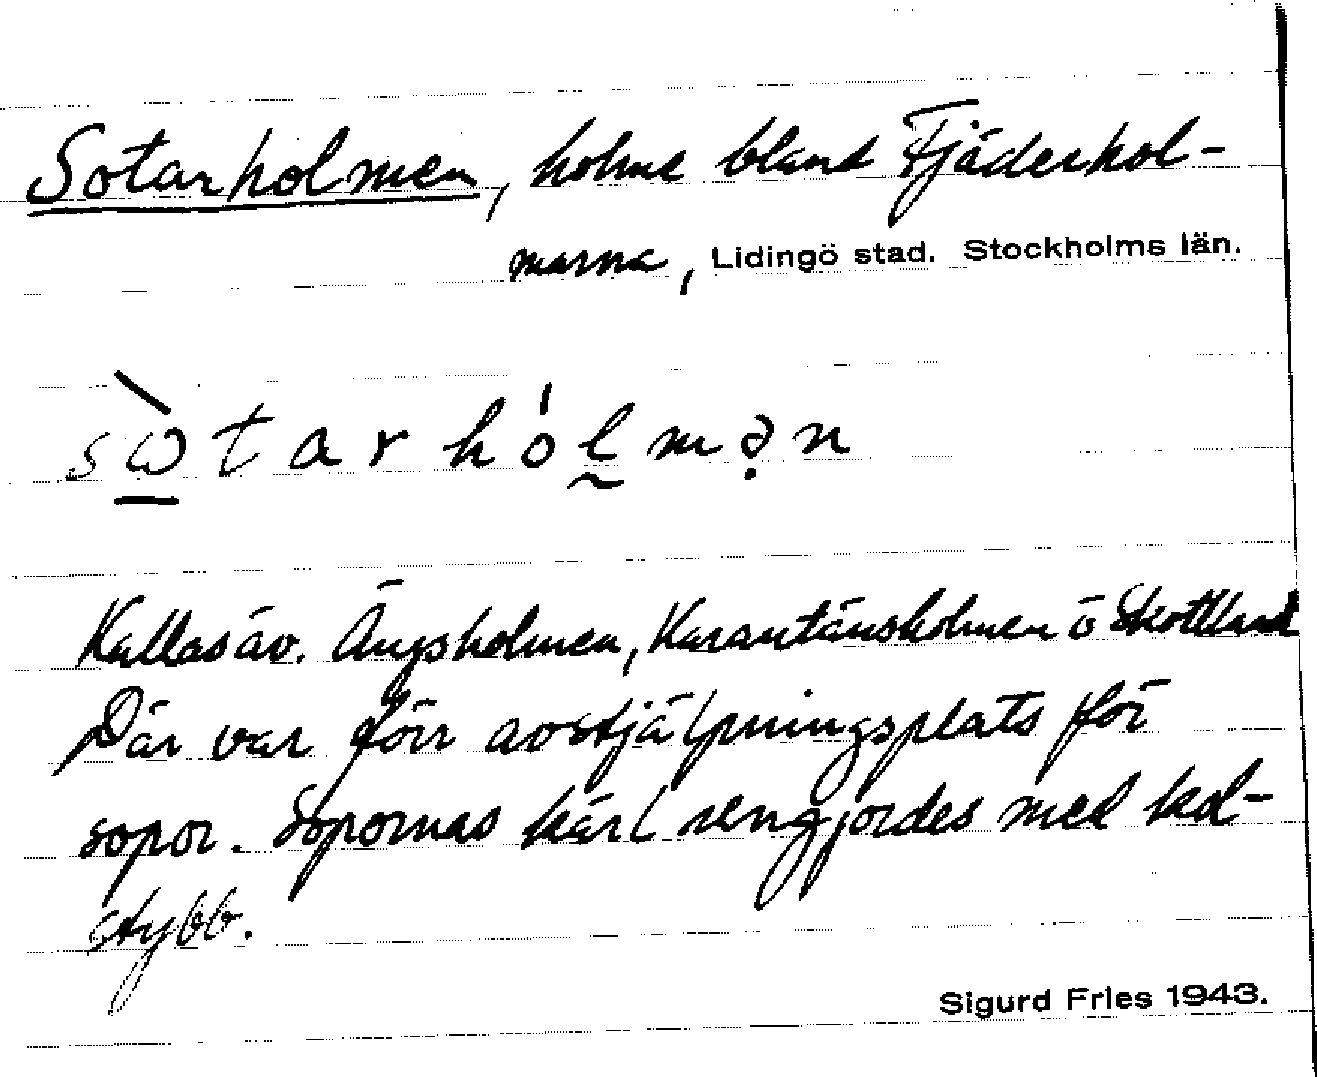 Sotarholmen, holme bland Fjäderhol-
marna, Lidingö stad. Stockholms län.
sὼtarhólmən
Kallas äv. Ängsholmen, Karantänsholmen o Skottland
Där var förr avstjälpningsplats för
sopor. Sopornas kärl rengjordes med kol-
stybb.
Sigurd Fries 1943.